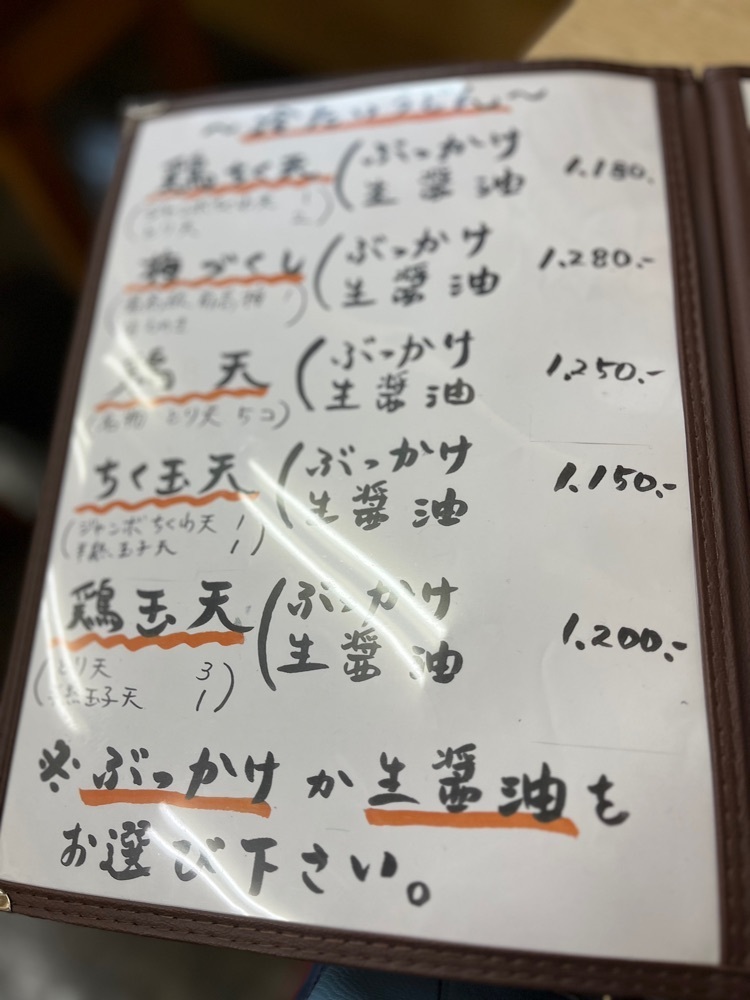 ~冷たいうどん~
鶏ちく天 (ぶっかけ 1.180.
生醤油
ジャンボちくわ天 1
とり天 2
梅づくし (ぶっかけ 1.280.-
生醤油
鶏天 (ぶっかけ 1.250.-
生醤油
とり天 5コ)
ちく玉天 (ぶっかけ 1.150.-
生醤油
(ジャンボちくわ天 1
半熟玉子天 1)
鶏玉天 (ぶっかけ 1.200.-
生醤油
(とり天 3
半熟玉子天 1)
※ぶっかけか生醤油を
お選び下さい。